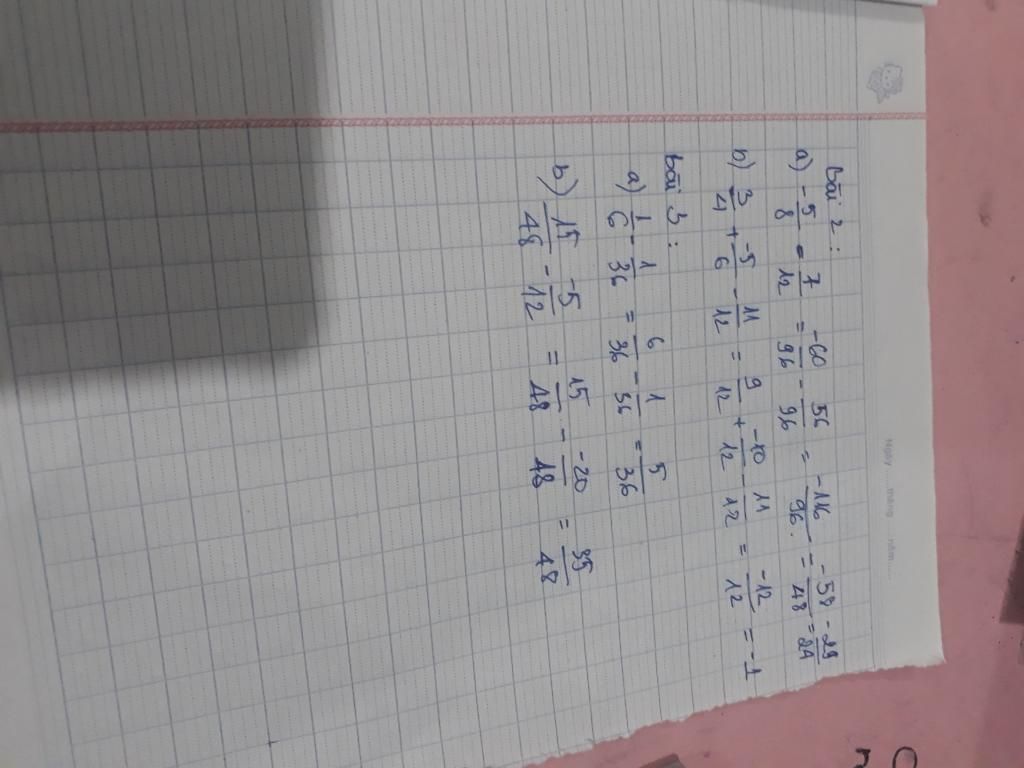 Ngày ..... tháng ..... năm.....
Bài 2 :
a) -5/8 = 7/12 = -60/96 - 56/96 = -116/96 = -58/48 = -29/24
b) 3/4 + -5/6 - 11/12 = 9/12 + -10/12 - 11/12 = -12/12 = -1
Bài 3 :
a) 1/6 - 1/36 = 6/36 - 1/36 = 5/36
b) 15/48 - -5/12 = 15/48 - -20/48 = 35/48